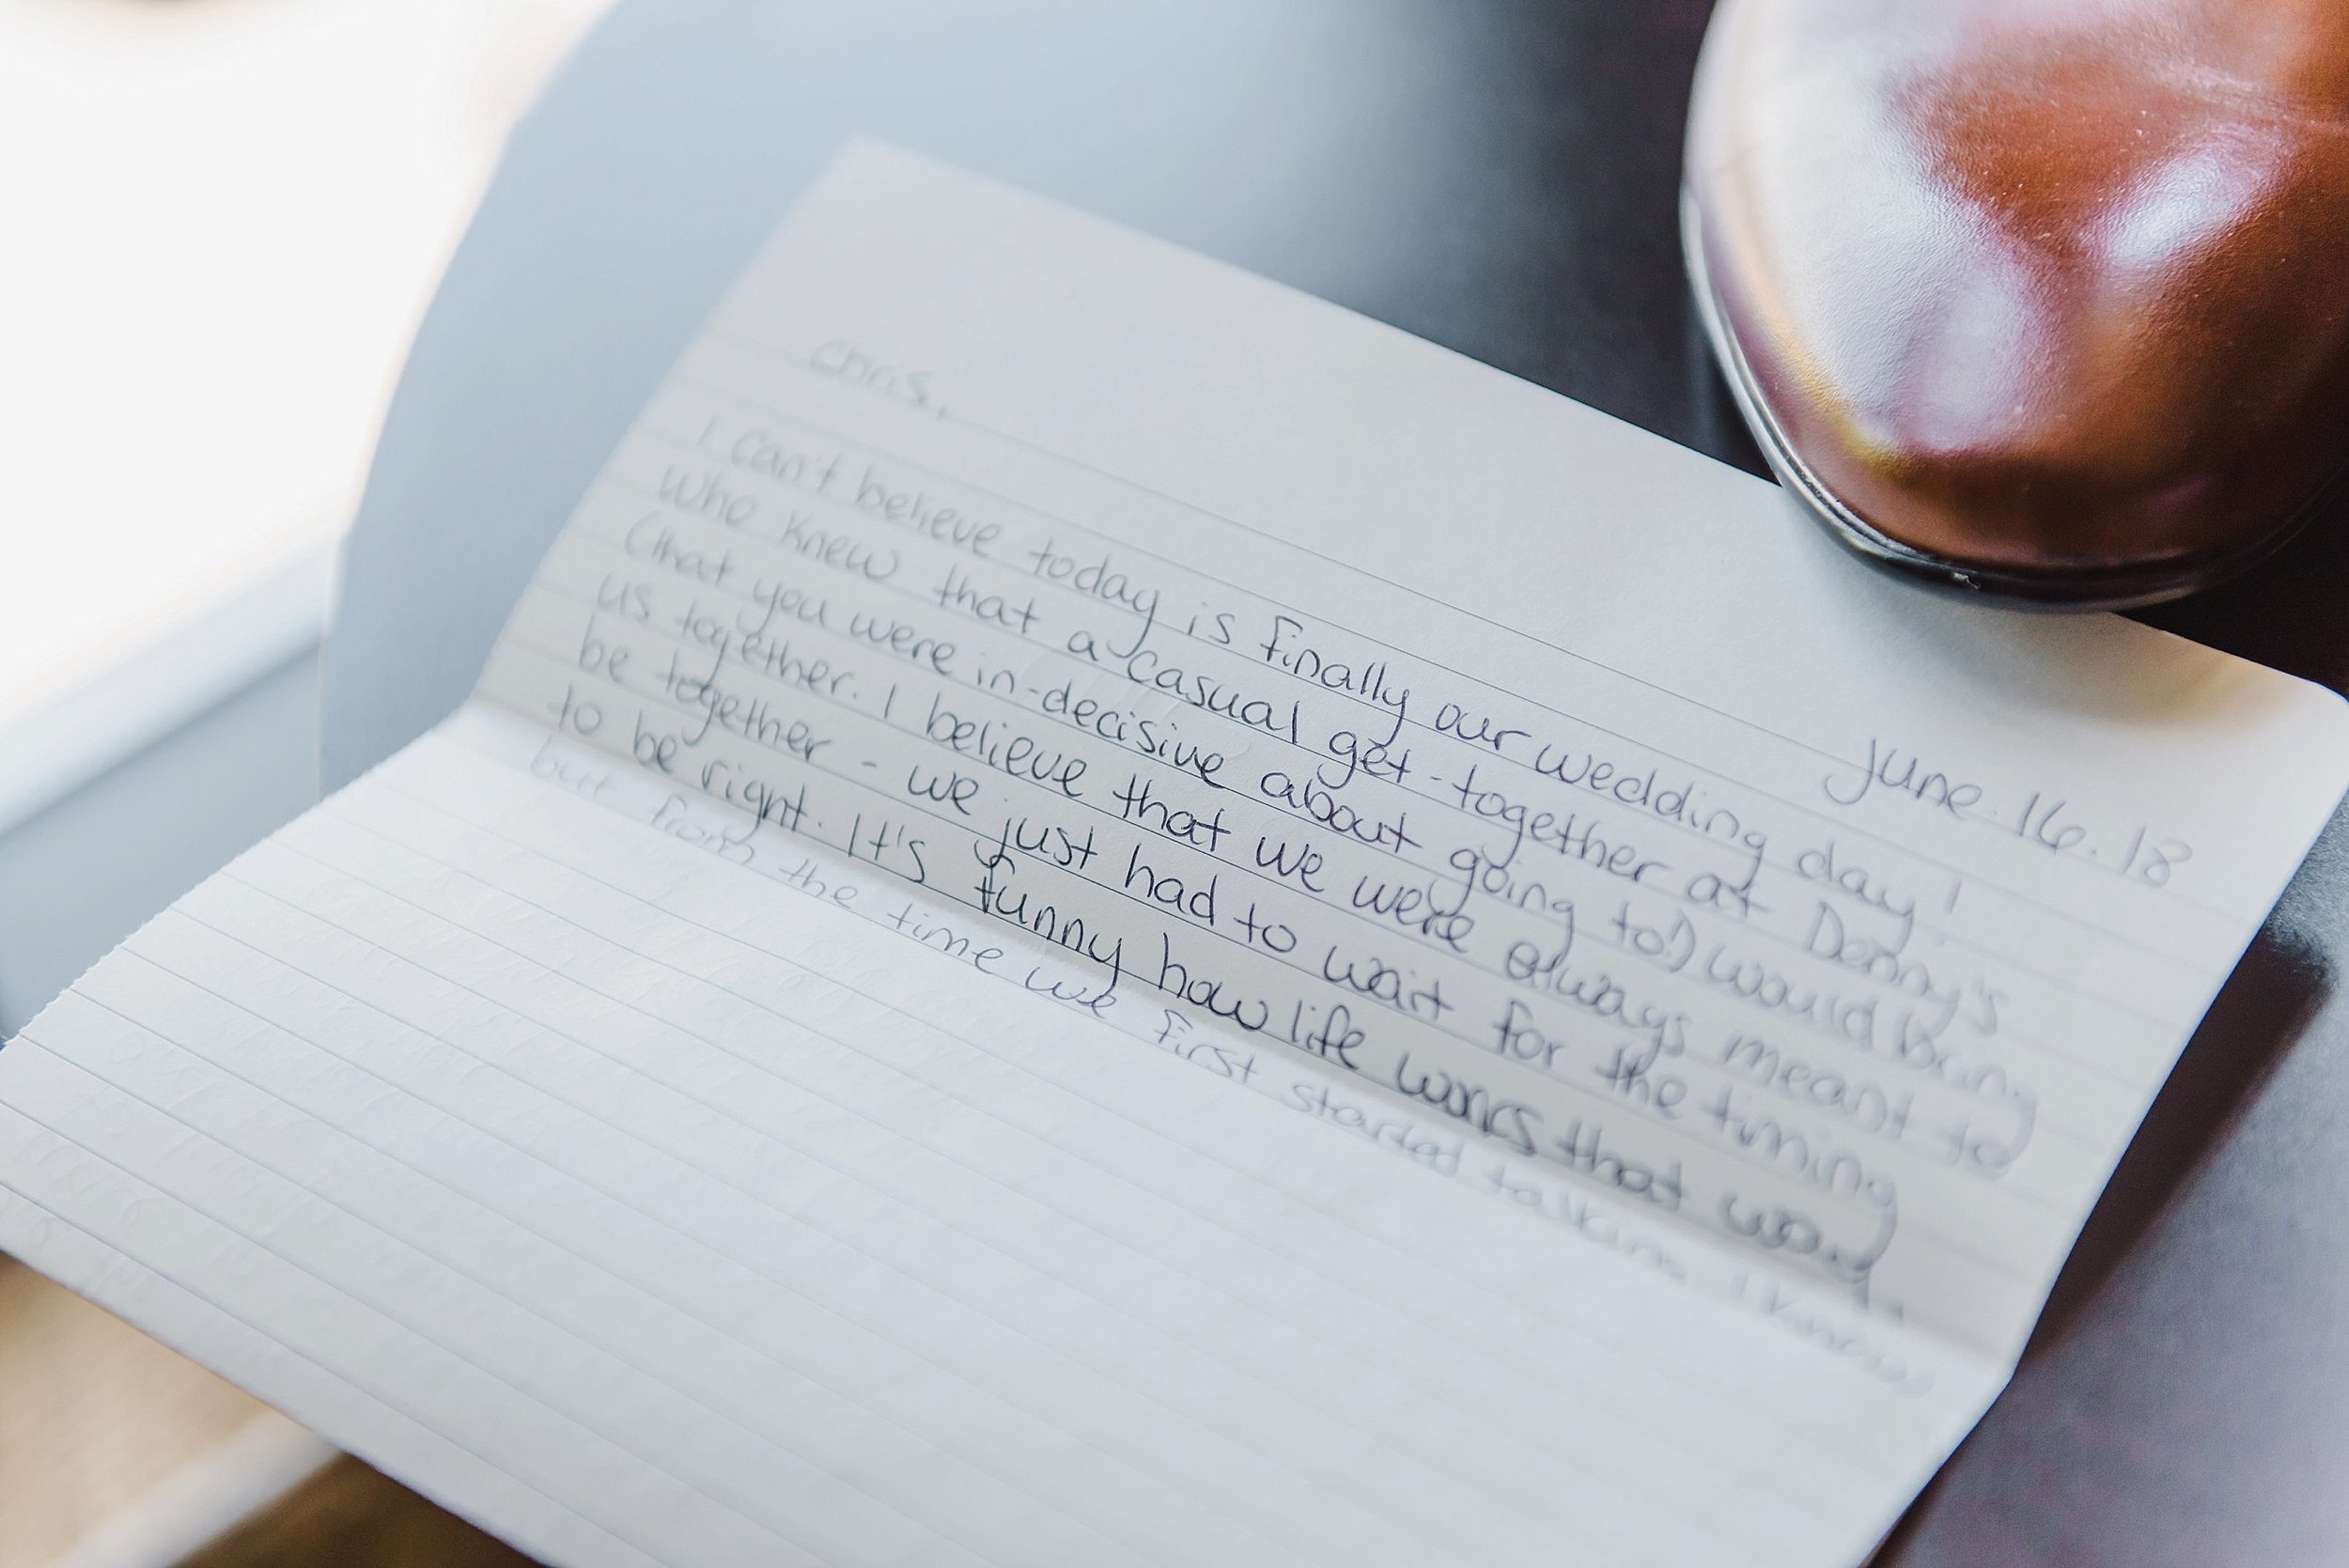 June 16.18
Chris,
I can't believe today is finally our wedding day!
Who knew that a casual get-together at Denny's
(that you were in-decisive about going to!) would bring
us together. I believe that we were always meant to
be together - we just had to wait for the timing
to be right. It's funny how life works that way,
but from the time we first started talking I knew